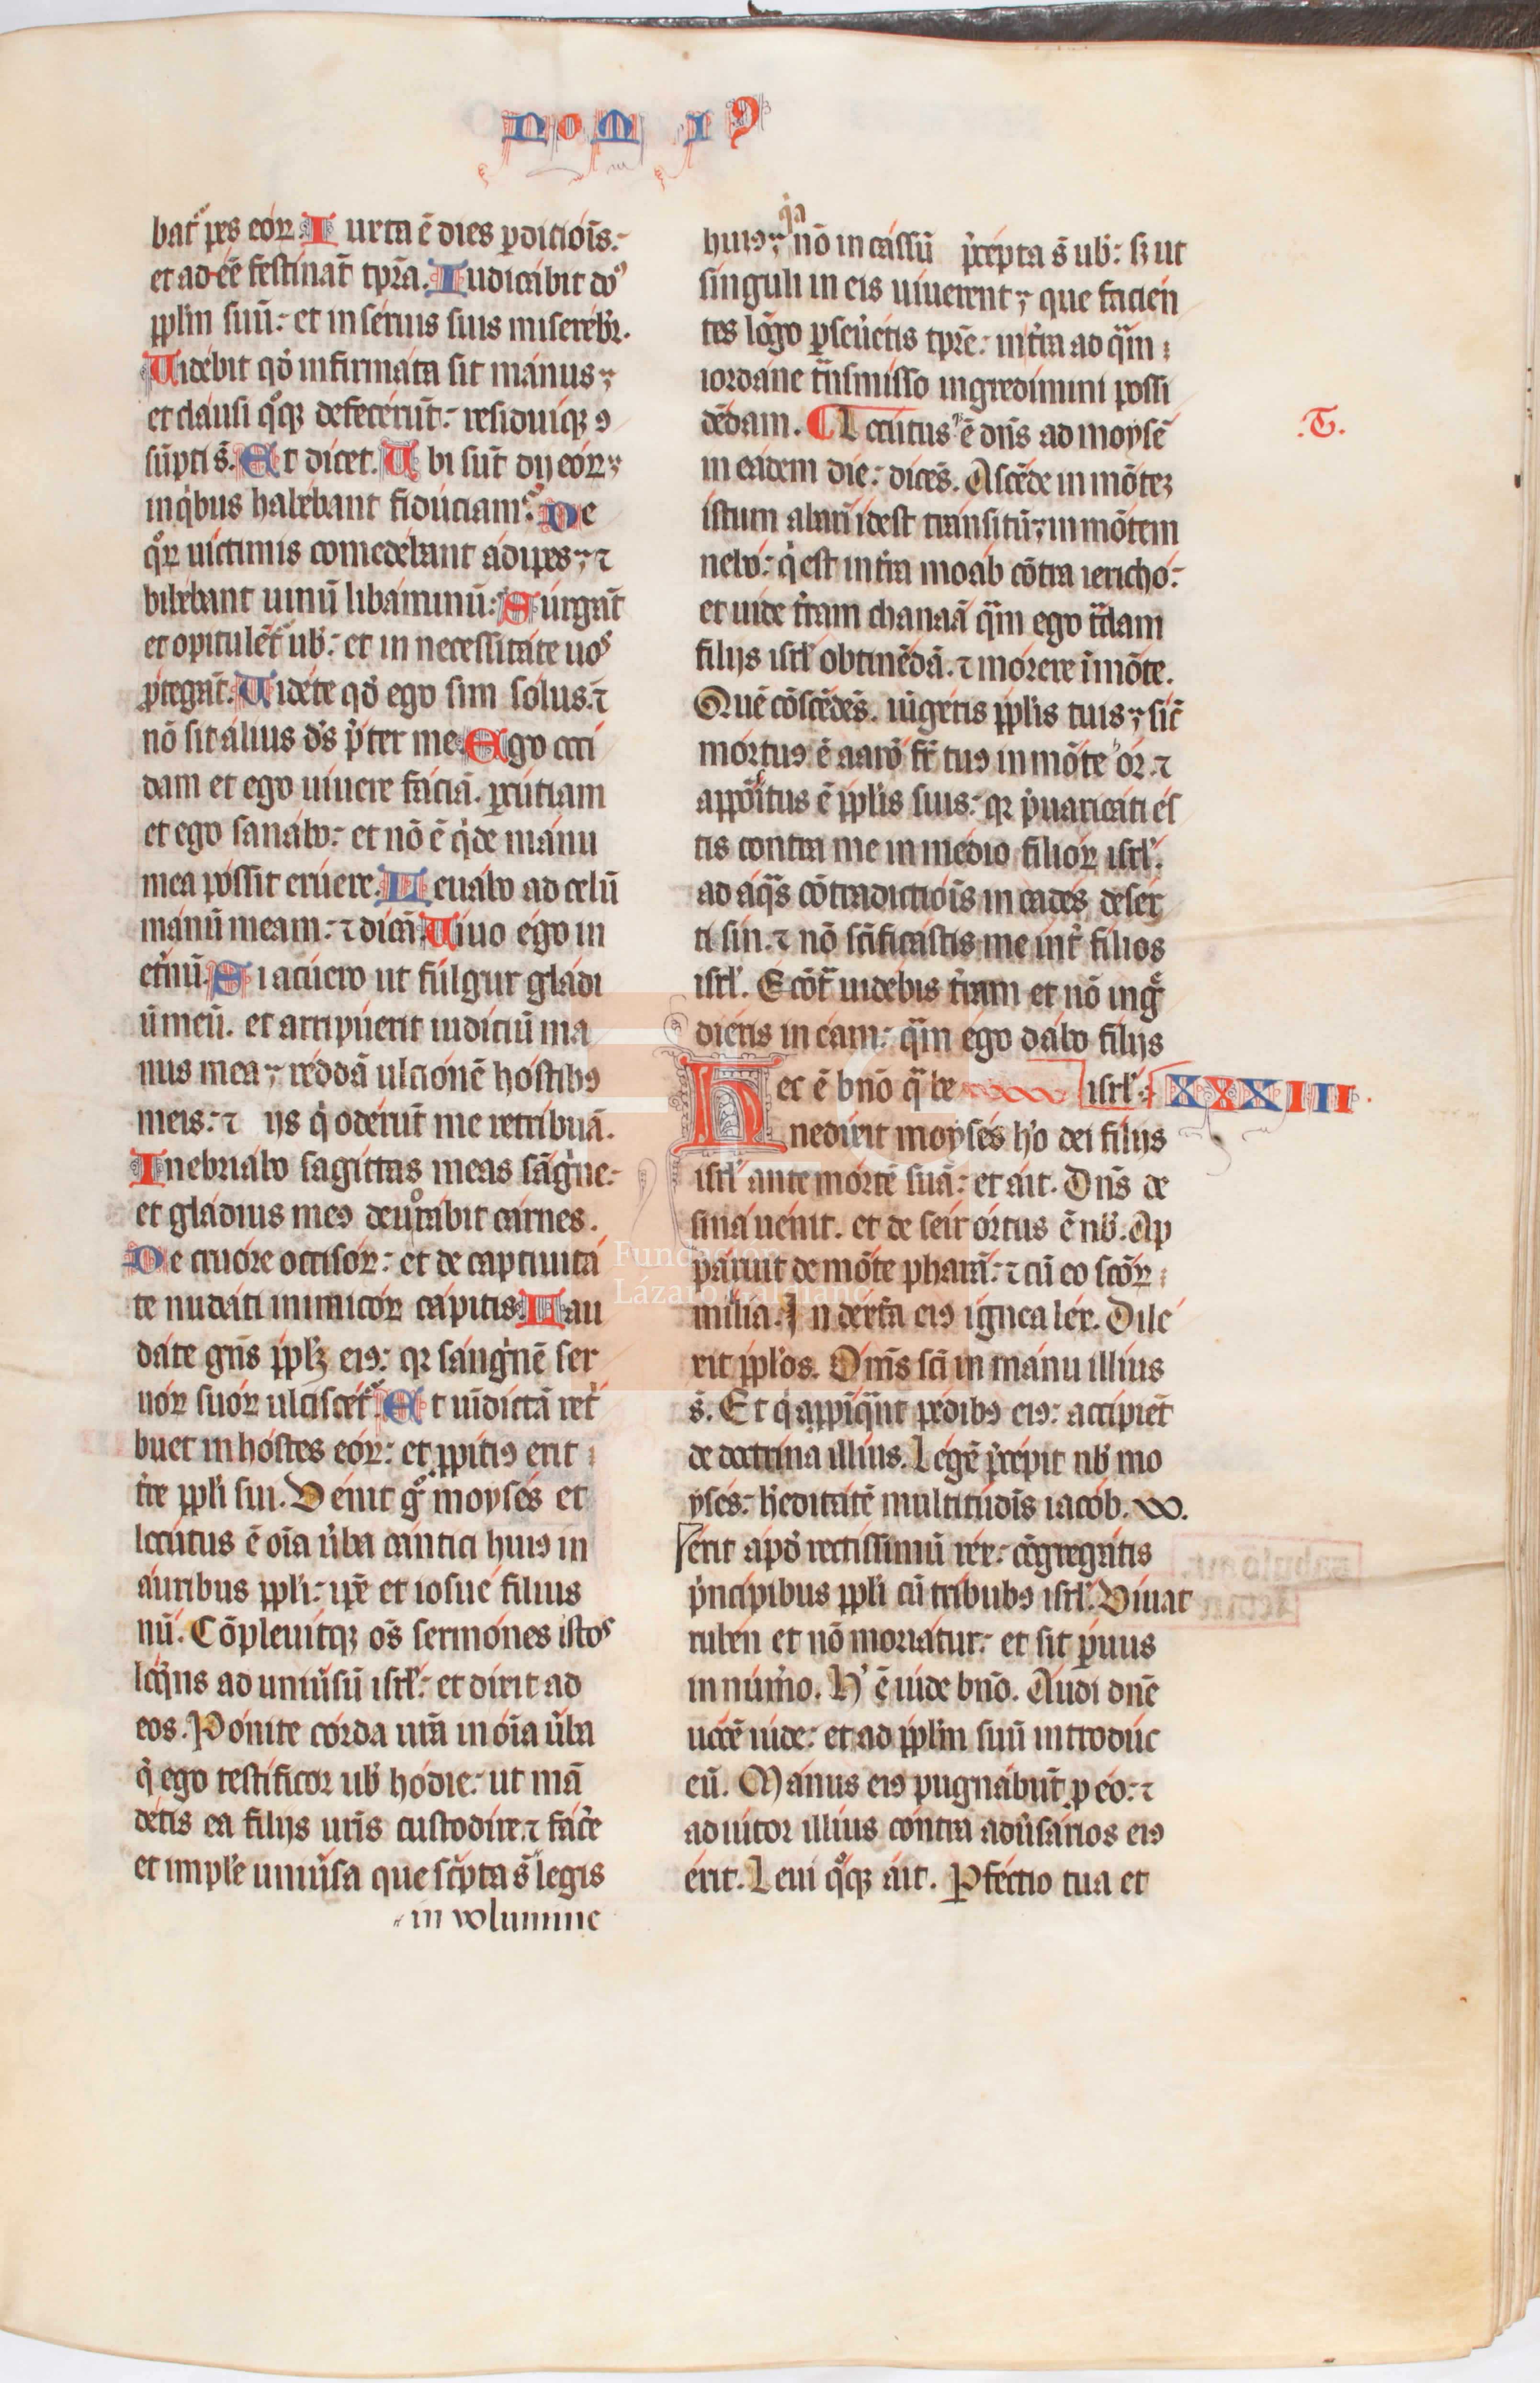 nom ıꝯ
bat᷑ pes eoꝝ. Iuxta ē dies ꝑditiōis:
et adeē festinat᷑ tp̄ra. Iudicabit dn̄s
pplm̄ suū: et in seruis suis misereb̄r.
Uidebit qđ infirmata sit manus;
et clausi qͦqꝫ defecerūt: residuiqꝫ ꝯ
sūpti s̄. Et dicet. Ubi sūt dij eoꝝ;
in qͥbus habebant fiduciam? De
qͦꝝ uictimis comedebant adipes; ⁊
bibebant uinū libaminū: Surgāt
et opitulēt᷑ uob: et in necessitate uos
ꝓtegāt. Uidete qđ ego sim solus. ⁊
nō sit alius ds̄ p̄ter me. Ego occi
dam et ego uiuere faciā. ꝑcutiam
et ego sanabo: et nō ē qͥ de manu
mea possit eruere. Leuabo ad celū
manū meam: ⁊ dicā. Uiuo ego in
et̄nū. Si acuero ut fulgur gladi
ū meū. et arripuerit iudiciū ma
nus mea; reddā ulcionē hostibꝯ
meis: ⁊ ijs qͥ oderūt me retribuā.
Inebriabo sagittas meas sāgͥne:
et gladius meꝯ deuorabit carnes.
De cruore occisoꝝ: et de captiuita
te nudati inimicoꝝ capitis. Lau
date gn̄s pplꝫ eiꝯ: qꝛ sangͥnē ser
uoꝝ suoꝝ ulciscet᷑. Et uīdictā retͥ
buet in hostes eoꝝ: et ꝓpitiꝯ erit
tr̄e ppli sui. Uenit gͦ moyses et
locutus ē oīa ūba cantici huiꝯ in
auribus ppli: ip̄e et iosue filius
nū. Cōpleuitqꝫ oēs sermones istos
loqͥns ad uniūsū isrl̄: et dixit ad
eos. Ponite corda urā in oīa ūba
q̄ ego testificor uob hodie: ut mā
detis ea filijs uris custodire. ⁊ facͤe
et imple uniūsa que scͥpta s̄ legis
in volumine
huiꝯ; qͣ nō in cassū p̄cepta s̄ uob: sꝫ ut
singuli in eis uiuerent; que facien
tes lōgo ꝑseuetis tp̄re: in tr̄a ad qͣm
iordane tn̄smisso ingredimini possi
dēdam. Locutusqꝫ ē dn̄s ad moysē
in eadem die: dicēs. Ascēde in mōteꝫ
istum abarī idest transitū; in mōtem
nebo: qͥ est in tr̄a moab cōtra iericho:
et uide tr̄am chanaā qͣm ego tradam
filijs isrl̄ obtinēdā. ⁊ morere ī mōte.
Quē cōscēdēs. iūgeris pplis tuis; sic̄
mortuꝯ ē aarō fr̄ tuꝯ in mōte or. ⁊
appositus ē pplis suis: qꝛ p̄uaricati es
tis contra me in medio filioꝝ isrl̄.
ad aqͣs cōtradictiōis in cades deser
ti sin. ⁊ nō scīficastis me int̄ filios
isrl̄. Ecōtͣ uidebis tr̄am et nō ingͤ
dieris in eam: qͣm ego dabo filijs
Hec ē bn̄o qͣ be isrl̄: XXXIII.
nedixit moyses hō dei filijs
isrl̄ ante mortē suā: et ait. Dn̄s de
sina uenit. et de seir ortus ē nob. Ap
paruit de mōte pharā: ⁊ cū eo scōꝝ
milia. In dext̄a eiꝯ ignea lex. Dile
xit pplos. Om̄s scī in manu illius
s̄. Et qͥ appīqͣnt pedibꝯ eiꝯ: accipiēt
de doctrina illius. Legē p̄cepit nob mo
yses: heditatē multitudīs iacob.
erit apđ rectissimū rex: cōgregatis
pͥncipibus ppli cū tribubꝯ isrl̄. Uiuat
ruben et nō moriatur: et sit ꝑuus
in num̄o. H̄ ē iude bn̄o. Audi dn̄e
uocē iude: et ad pplm̄ suū introduc
eū. Manus eiꝯ pugnabūt ꝓ eo: ⁊
adiutor illius contra adūsarios eiꝯ
erit. Leui qͦqꝫ ait. Pfectio tua et
.T.
Fundación
Lázaro Galdiano